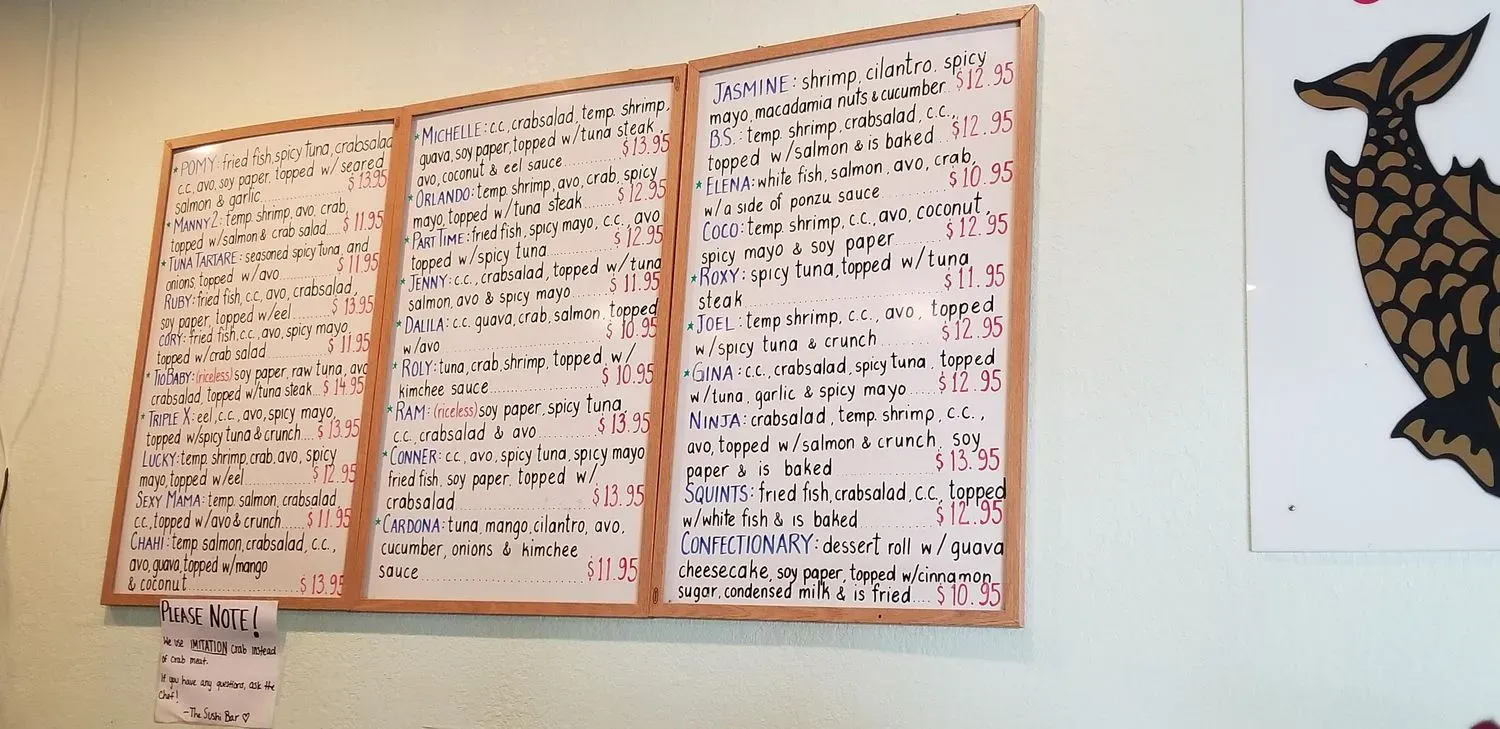 *POMY: fried fish, spicy tuna, crabsalad
c.c, avo, soy paper, topped w/ seared
salmon & garlic........ $13.95
*MANNY2: temp. shrimp, avo, crab,
topped w/salmon & crab salad.... $11.95
*TUNA TARTARE: seasoned spicy tuna, and
onions, topped w/avo........ $11.95
RUBY: fried fish, c.c, avo, crabsalad,
soy paper, topped w/eel........ $13.95
CORY: fried fish, c.c., avo, spicy mayo,
topped w/crab salad........ $11.95
*TIO BABY: (riceless) soy paper, raw tuna, avo
crabsalad, topped w/tuna steak.. $14.95
*TRIPLE X: eel, c.c., avo, spicy mayo,
topped w/spicy tuna & crunch.... $13.95
LUCKY: temp. shrimp, crab, avo, spicy
mayo, topped w/eel........ $12.95
SEXY MAMA: temp. salmon, crabsalad
c.c., topped w/avo & crunch..... $11.95
CHAHI: temp salmon, crabsalad, c.c.,
avo, guava, topped w/mango
& coconut........ $13.95
PLEASE NOTE!
We use IMITATION crab instead
of crab meat.
If you have any questions, ask the
Chef!
-The Sushi Bar ♡
*MICHELLE: c.c., crabsalad, temp. shrimp,
guava, soy paper, topped w/tuna steak,
avo, coconut & eel sauce........ $13.95
*ORLANDO: temp. shrimp, avo, crab, spicy
mayo, topped w/tuna steak........ $12.95
*PART TIME: fried fish, spicy mayo, c.c., avo
topped w/spicy tuna........ $12.95
*JENNY: c.c., crabsalad, topped w/tuna
salmon, avo & spicy mayo........ $11.95
*DALILA: c.c. guava, crab, salmon, topped
w/avo........ $10.95
*ROLY: tuna, crab, shrimp, topped w/
kimchee sauce........ $10.95
*RAM: (riceless) soy paper, spicy tuna,
c.c., crabsalad & avo........ $13.95
*CONNER: c.c., avo, spicy tuna, spicy mayo
fried fish, soy paper, topped w/
crabsalad........ $13.95
*CARDONA: tuna, mango, cilantro, avo,
cucumber, onions & kimchee
sauce........ $11.95
JASMINE: shrimp, cilantro, spicy
mayo, macadamia nuts & cucumber.. $12.95
B.S.: temp. shrimp, crabsalad, c.c.,
topped w/salmon & is baked.. $12.95
*ELENA: white fish, salmon, avo, crab,
w/a side of ponzu sauce........ $10.95
COCO: temp. shrimp, c.c., avo, coconut,
spicy mayo & soy paper........ $12.95
*ROXY: spicy tuna, topped w/tuna
steak........ $11.95
*JOEL: temp shrimp, c.c., avo, topped
w/spicy tuna & crunch........ $12.95
*GINA: c.c., crabsalad, spicy tuna, topped
w/tuna, garlic & spicy mayo........ $12.95
NINJA: crabsalad, temp. shrimp, c.c.,
avo, topped w/salmon & crunch, soy
paper & is baked........ $13.95
SQUINTS: fried fish, crabsalad, c.c., topped
w/white fish & is baked........ $12.95
CONFECTIONARY: dessert roll w/ guava
cheesecake, soy paper, topped w/cinnamon
sugar, condensed milk & is fried.... $10.95